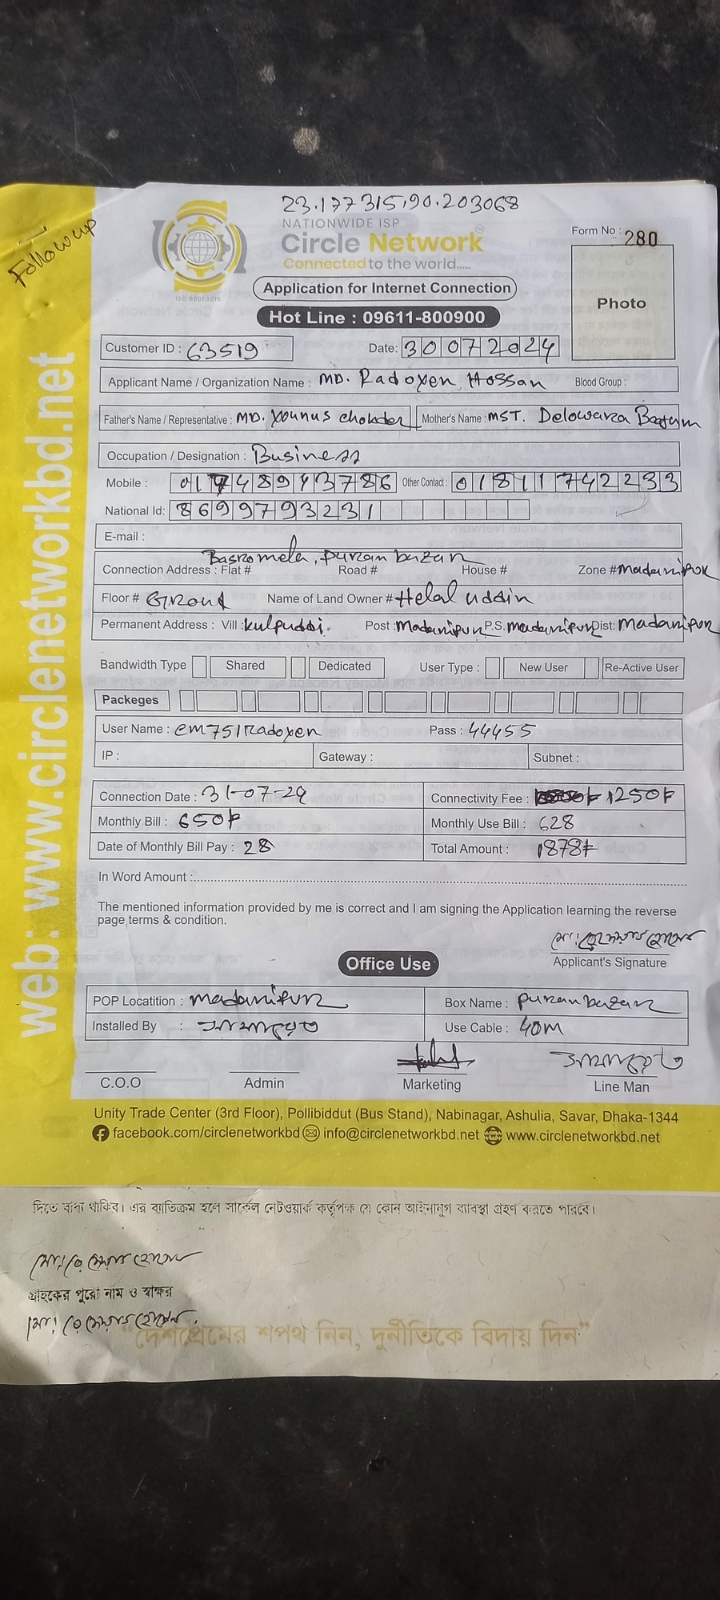 23.177315,90.203068
Followup
NATIONWIDE ISP
Circle Network
Connected to the world.....
ISO 9001:2015
Form No : 280
Application for Internet Connection
Hot Line : 09611-800900
Photo
Customer ID : 63519 Date: 30072024
Applicant Name / Organization Name : MD. Radoyen Hossan Blood Group :
Father's Name / Representative : MD. Younus chokder Mother's Name : MST. Delowara Begum
Occupation / Designation : Business
Mobile : 01748943786 Other Contact : 01811742233
National Id: 8699793231
E-mail :
puran bazar
Connection Address : Flat # Road # House # Zone # madaripur
Floor # Ground Name of Land Owner # Helal uddin
Permanent Address : Vill : kulpuddi. Post : madaripur P.S: madaripur Dist: Madaripur
Bandwidth Type Shared Dedicated User Type : New User Re-Active User
Packeges
User Name : cm751Radoyen Pass : 44455
IP : Gateway : Subnet :
Connection Date : 31-07-24 Connectivity Fee : 1250৳
Monthly Bill : 650৳ Monthly Use Bill : 628
Date of Monthly Bill Pay : 28 Total Amount : 1878৳
In Word Amount :
The mentioned information provided by me is correct and I am signing the Application learning the reverse
page terms & condition.
Applicant's Signature
Office Use
POP Locatition : madaripur Box Name : puran bazar
Installed By : Use Cable : 40M
C.O.O Admin Marketing Line Man
Unity Trade Center (3rd Floor), Pollibiddut (Bus Stand), Nabinagar, Ashulia, Savar, Dhaka-1344
facebook.com/circlenetworkbd info@circlenetworkbd.net www.circlenetworkbd.net
web: www.circlenetworkbd.net
দিতে বাধ্য থাকিব। এর ব্যতিক্রম হলে সার্কেল নেটওয়ার্ক কর্তৃপক্ষ যে কোন আইনানুগ ব্যবস্থা গ্রহণ করতে পারবে।
গ্রাহকের পুরো নাম ও স্বাক্ষর
"দেশপ্রেমের শপথ নিন, দুর্নীতিকে বিদায় দিন"